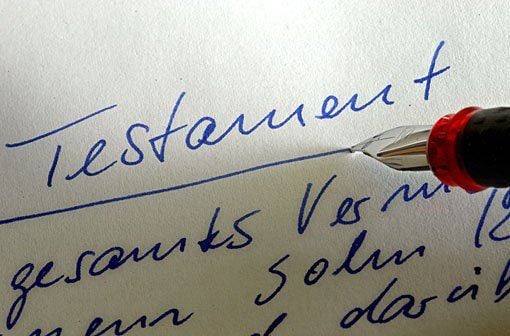 Testament
gesamtes Verm
meinem Sohn
darüb